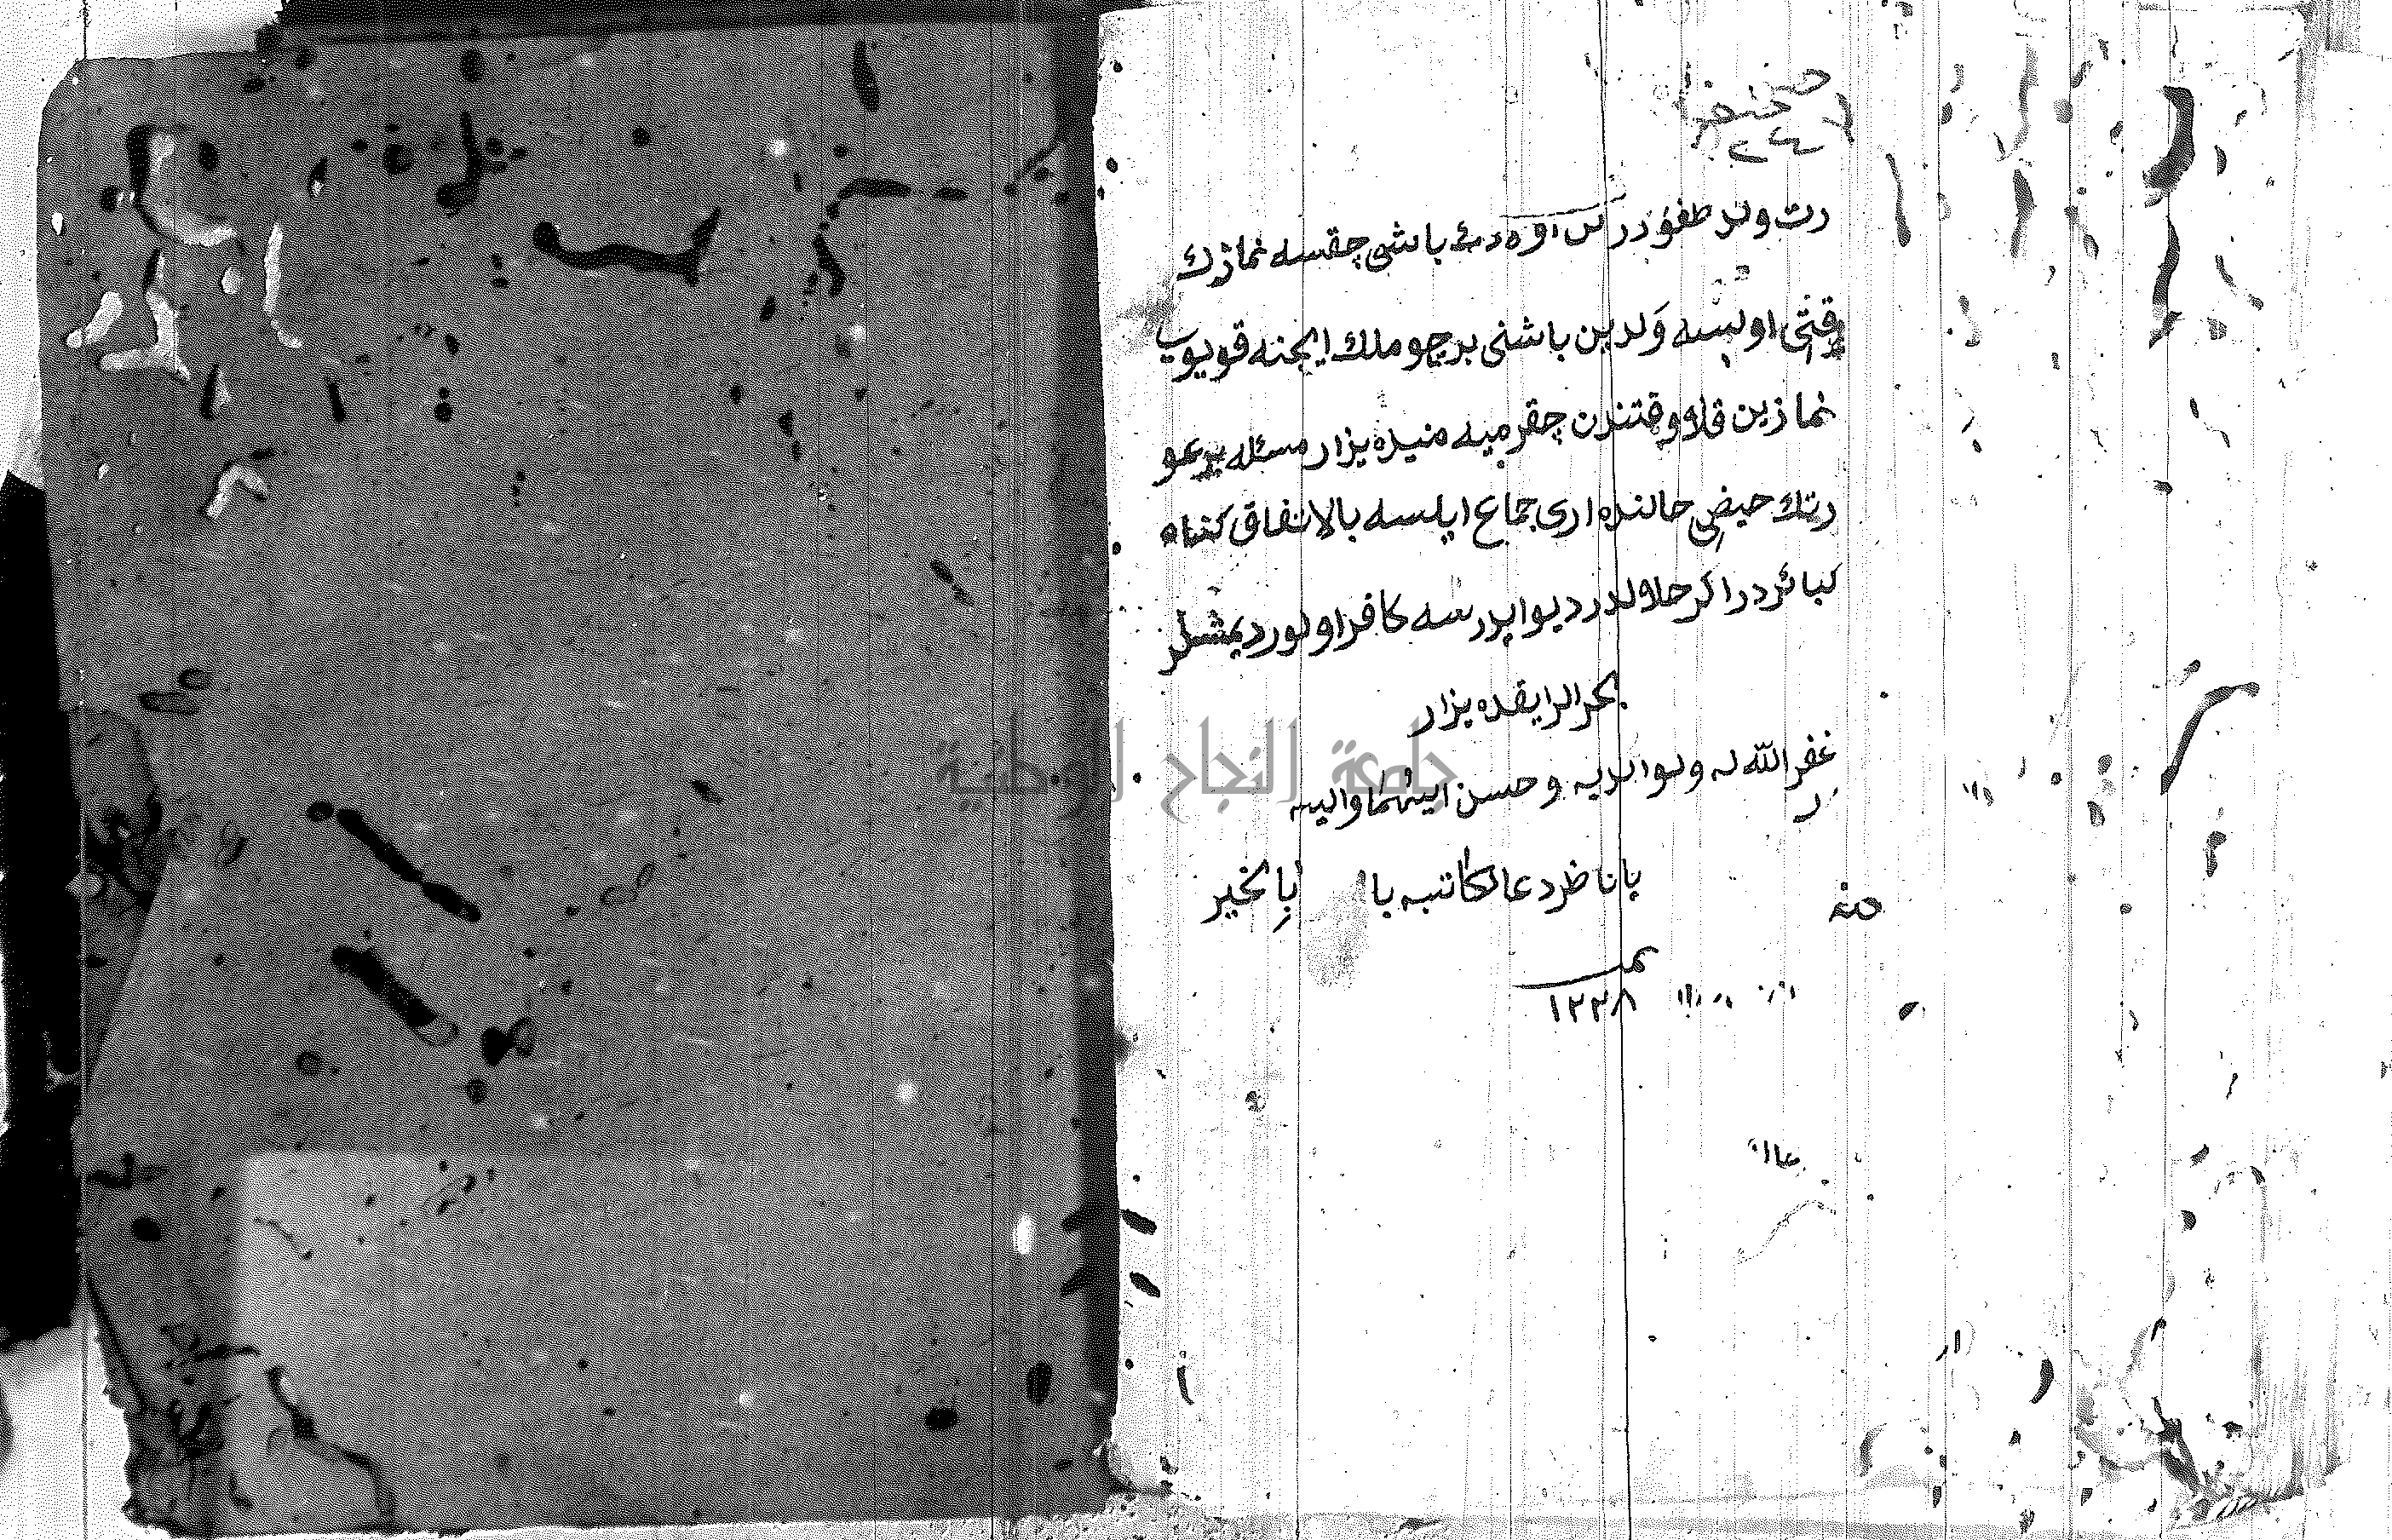 رت ولد طغودرس اوه دئ باشی چقسه نمازك
وقتی اولیسه وَلدین باشنی بر چوملك ایچنه قویوب
نمازین قله وقتندن چقرمیه منیده یزار مسئله بر عو
رتك حیض حالنده اری جماع ایلسه بالاتفاق كناه
كبائردر اكر حلالدر دیو ایدرسه كافر اولور دیمشلر
بحر الرایقده یزار
غفر الله له ولوالدیه وحسن الیهما والیه
یا ناظر دعا لكاتبه با بالخیر
منه
١٢٢٨
جامعة النجاح الوطنية